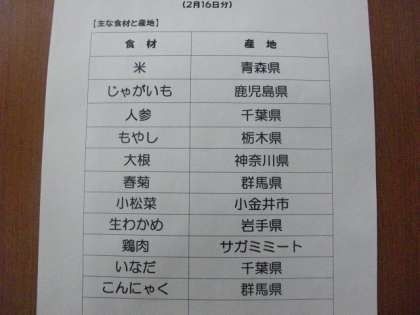 (2月16日分)
【主な食材と産地】
食 材 産 地
米 青森県
じゃがいも 鹿児島県
人参 千葉県
もやし 栃木県
大根 神奈川県
春菊 群馬県
小松菜 小金井市
生わかめ 岩手県
鶏肉 サガミミート
いなだ 千葉県
こんにゃく 群馬県